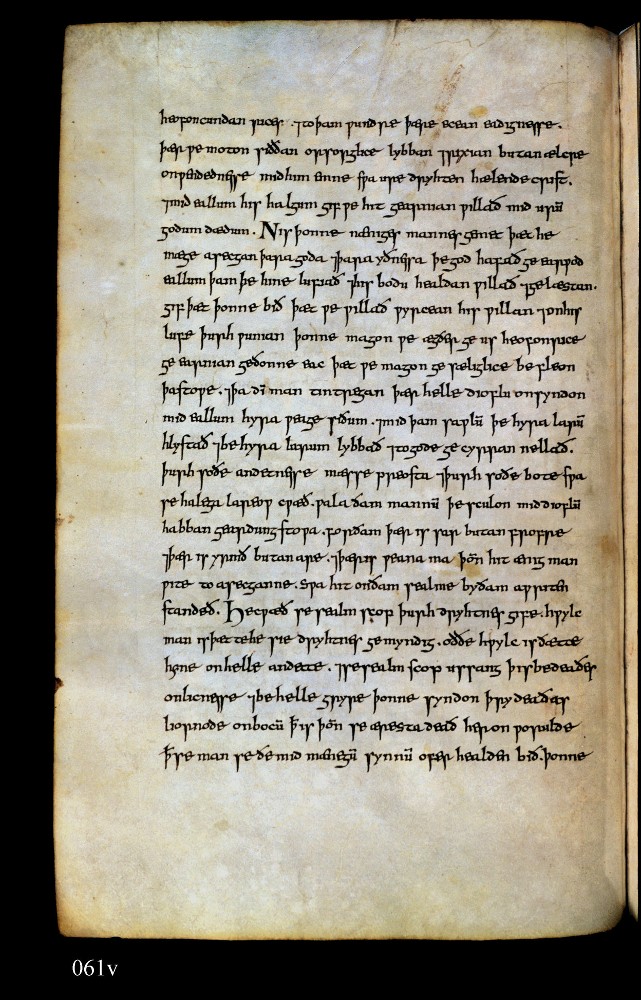 heofoncundan rices . ⁊ to þam wundre þære ecean eadignesse .
þær we moton siððan orsorglice lybban ⁊ rixian butan ælcre
onwæðednesse mid him anne swa ure dryhten hælende crist .
⁊ mid eallum his halgum gif we hit gearnian willað mid urū
godum dædum . Nis þonne næniges mannes gemet þæt he
mæge asecgan þara goda ⁊ þara yðnessa þe god hafað gearwod
eallum þam þe hine lufiað ⁊ his bodu healdan willað ⁊ gelæstan .
gif þæt þonne bið þæt we willað wyrcean his willan ⁊ on his
lufe þurhwunian þonne magon we ægðer ge us heofonrice
ge earnian ge ðonne eac þæt we magon gesæliglice befleon
þa stowe . ⁊ þa dimman tintregan þær helle dioflu on syndon
mid eallum hyra weagesiðum . ⁊ mid þam sawlū þe hyra larū
hlystað ⁊ be hyra larum lybbað ⁊ to gode gecyrran nellað .
þurh soðe andetnesse mæssepreosta ⁊ þurh soðe bote swa
se halega lareow cwæð . wa la ðam mannū þe sculon mid dioflū
habban geardungstowa . forðam þær is sar butan frofre
⁊ þær is yrmð butan are . ⁊ þær is weana ma þōn hit æniġ man
wite to asecganne . swa hit on ðam sealme by ðam awriten
standeð . He cwæð se sealmscop þurh dryhtnes gife . hwylc
man is þætte he sie dryhtnes gemyndig . oððe hwylc is ðætte
hine on helle andette . ⁊ se sealmscop us sang þis be deaðes
onlicnesse ⁊ be helle gryre þonne syndon þry deaðas
liornode on bocū þ̄ is þōn se æresta deað her on worulde
þ̄ se man se ðe mid mænegū synnū oferhealden bið . þonne